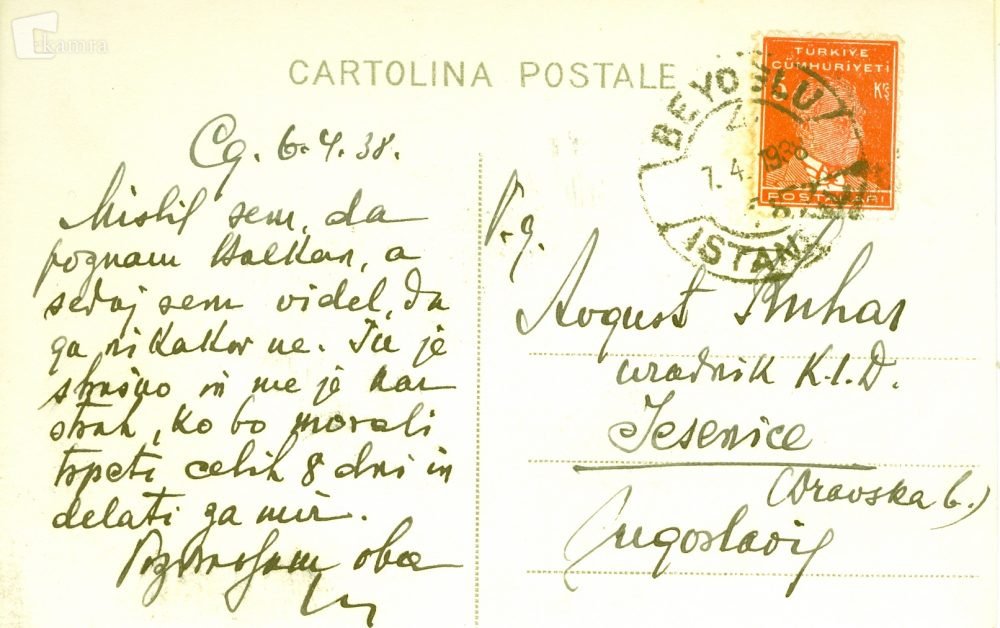 ekamra
CARTOLINA POSTALE
TÜRKİYE
CÜMHURİYETİ
Kş
POSTALARI
BEYOĞLU
7.4.1938
ISTAN
Cg. 6.4.38.
Mislil sem, da
poznam Balkan, a
sedaj sem videl, da
ga nikakor ne. Tu je
strašno in me je kar
strah, ko bo morali
trpeti celih 8 dni in
delati za mir.
Pozdravljam oba
P.g.
Avgust Ruhar
uradnik K.I.D.
Jesenice
(Dravska b.)
Jugoslavij